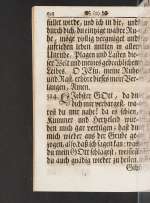 füllet werde, und ich in dir, und
durch dich, du einige wahre Ru-
he, mög völlig vergnüget und
zufrieden leben mitten in aller
Unruhe, Plagen und Lasten die-
ser Welt und meines gebrechlichen
Leibes. O JEsu, meine Ruhe
und Rast, erhöre dieses mein Ver-
langen, Amen.
Liebster GOtt, da du
dich mir verbargest, wa-
rest du mir nahe! da es schien,
Kummer und Herzleid wür-
den mich gar vertilgen; hast du
mich wieder aus der Grube ge-
zogen, also, daß ich sagen kan: was
du mein GOtt schlägst,
du auch gnädig wieder zu heilen.